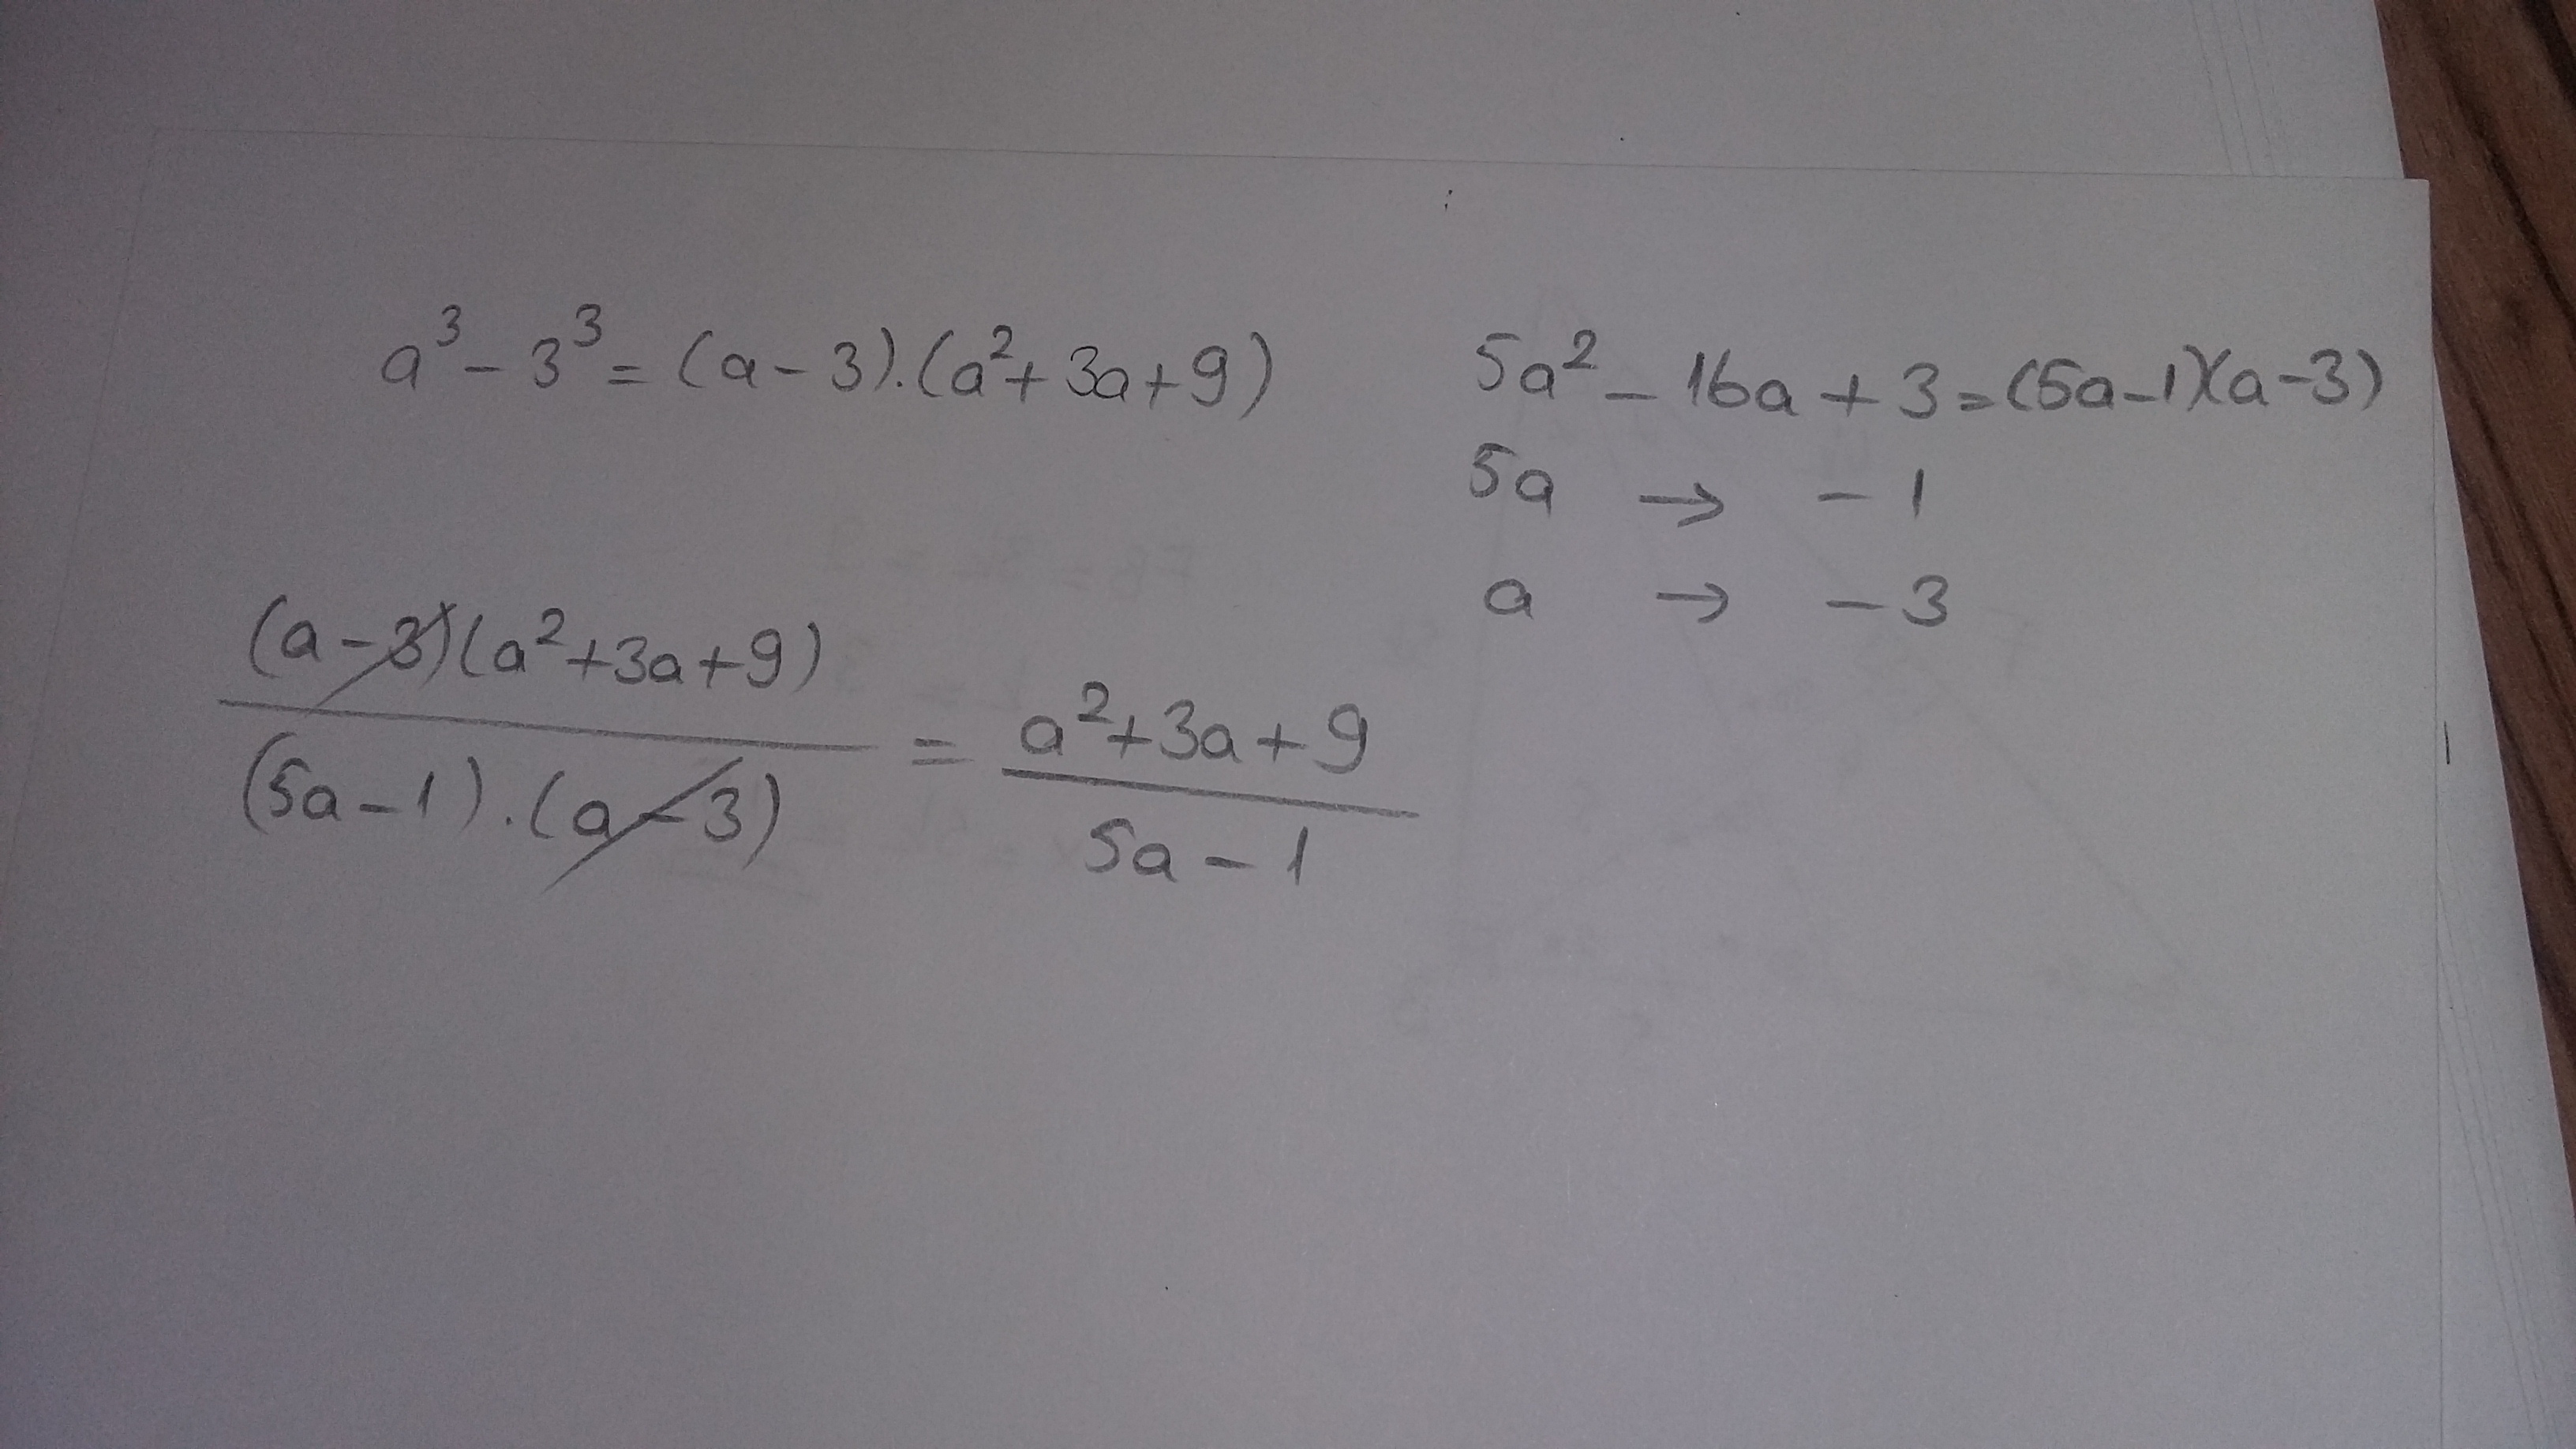 a³ - 3³ = (a - 3).(a² + 3a + 9)
5a² - 16a + 3 = (5a - 1)(a - 3)
5a → - 1
a → - 3
(a - 3)(a² + 3a + 9)
(5a - 1).(a - 3)
=
a² + 3a + 9
5a - 1